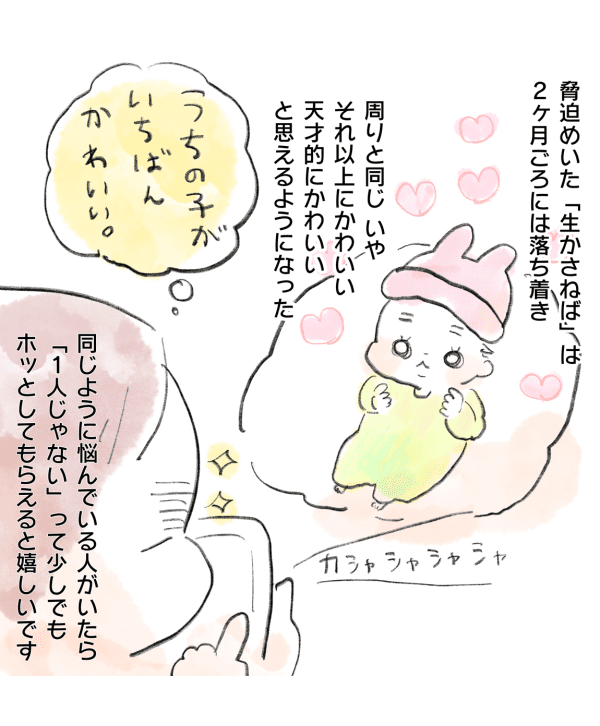 脅迫めいた「生かさねば」は
２ヶ月ごろには落ち着き
周りと同じ いや
それ以上にかわいい
天才的にかわいい
と思えるようになった
うちの子が
いちばん
かわいい。
カシャシャシャシャ
同じように悩んでいる人がいたら
「１人じゃない」って少しでも
ホッとしてもらえると嬉しいです